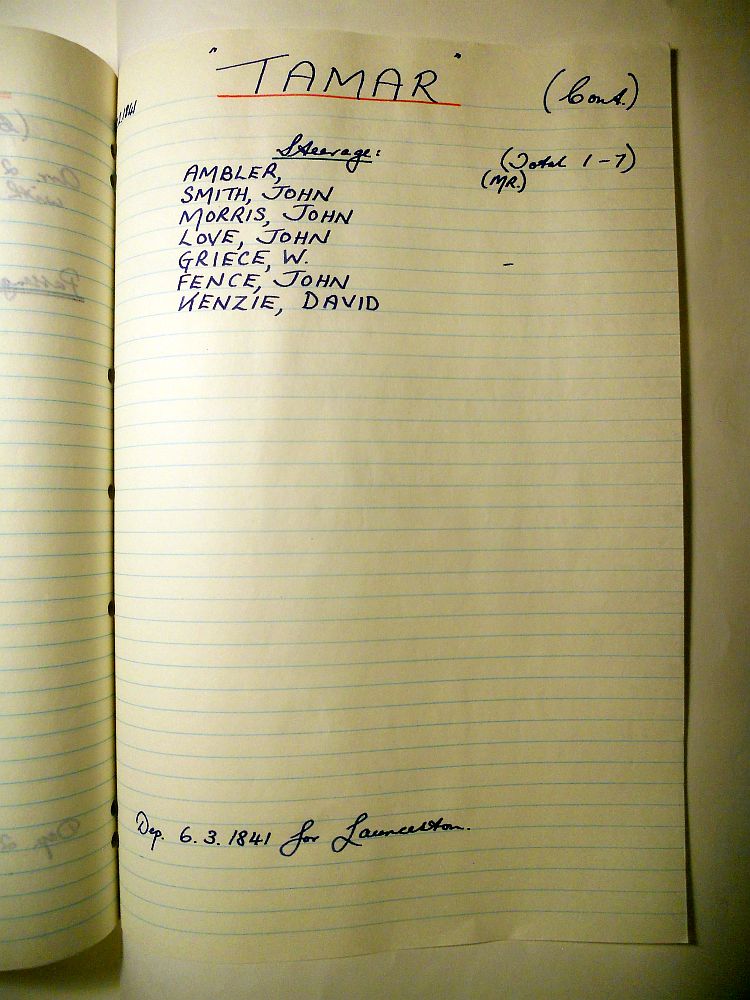 "TAMAR" (Cont.)
Steerage: (Total 1-7)
AMBLER, (MR.)
SMITH, JOHN
MORRIS, JOHN
LOVE, JOHN
GRIECE, W. -
FENCE, JOHN
KENZIE, DAVID
Dep. 6.3.1841 for Launceston.